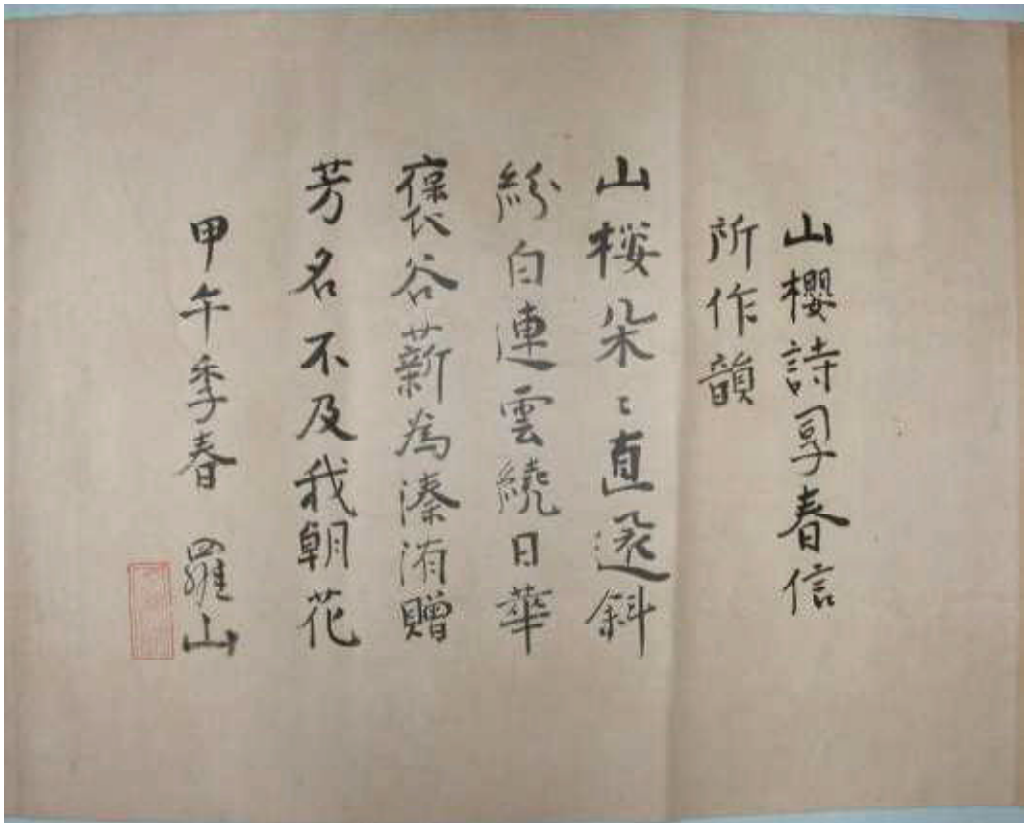 山櫻詩春信
所作韻
山桜朶〻直還斜
紛白連雲繞日華
谷薪為溱洧贈
芳名不及我朝花
甲午季春 羅山